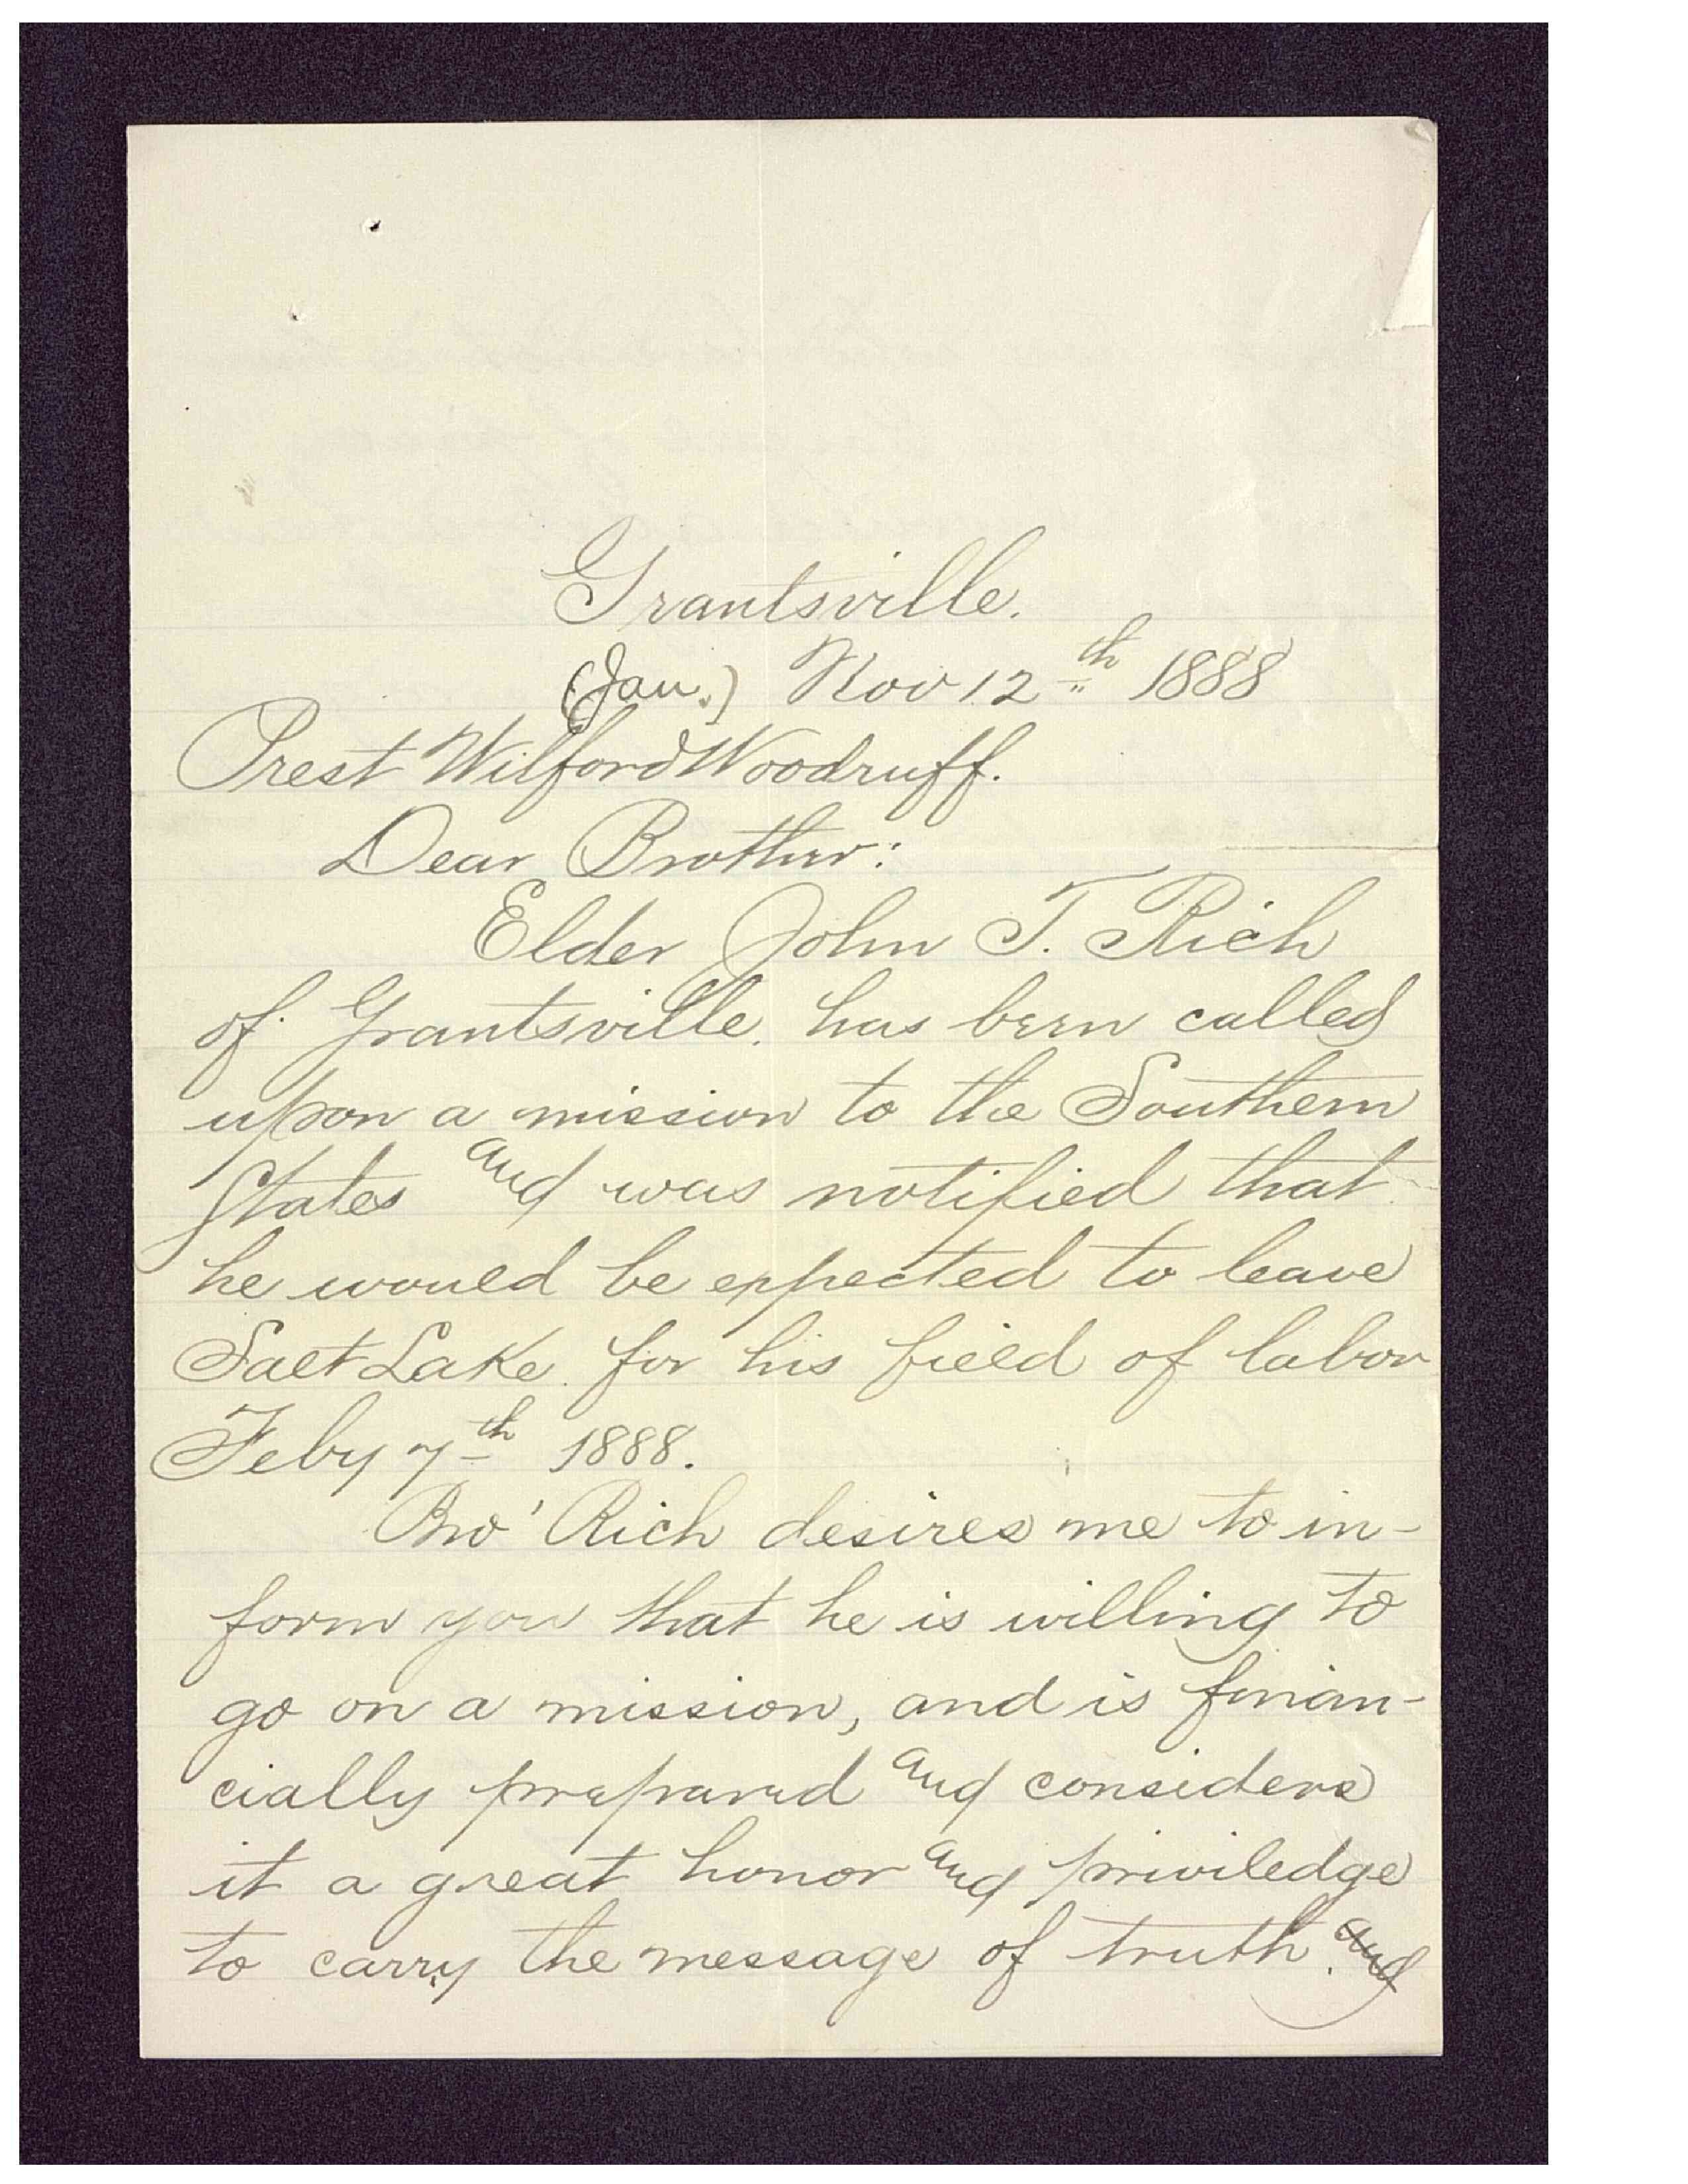 Grantsville.
(Jan.) Nov 12th 1888
Prest Wilford Woodruff.
Dear Brother:
Elder John T. Rich
of Grantsville. has been called
upon a mission to the Southern
States and was notified that
he would be expected to leave
Salt Lake. for his field of labor
Feby 7th 1888.
Bro' Rich desires me to in-
form you that he is willing to
go on a mission, and is finan-
cially prepared and considers
it a great honor and priviledge
to carry the message of truth. and